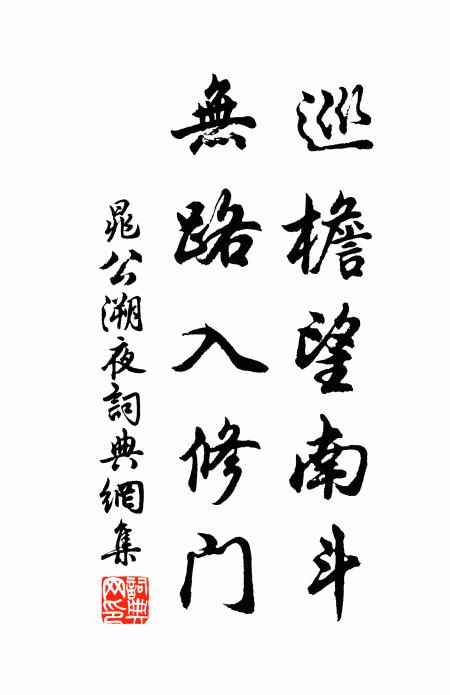 巡檐望南斗
無路入修門
晁公溯夜詞典網集
詞典網印